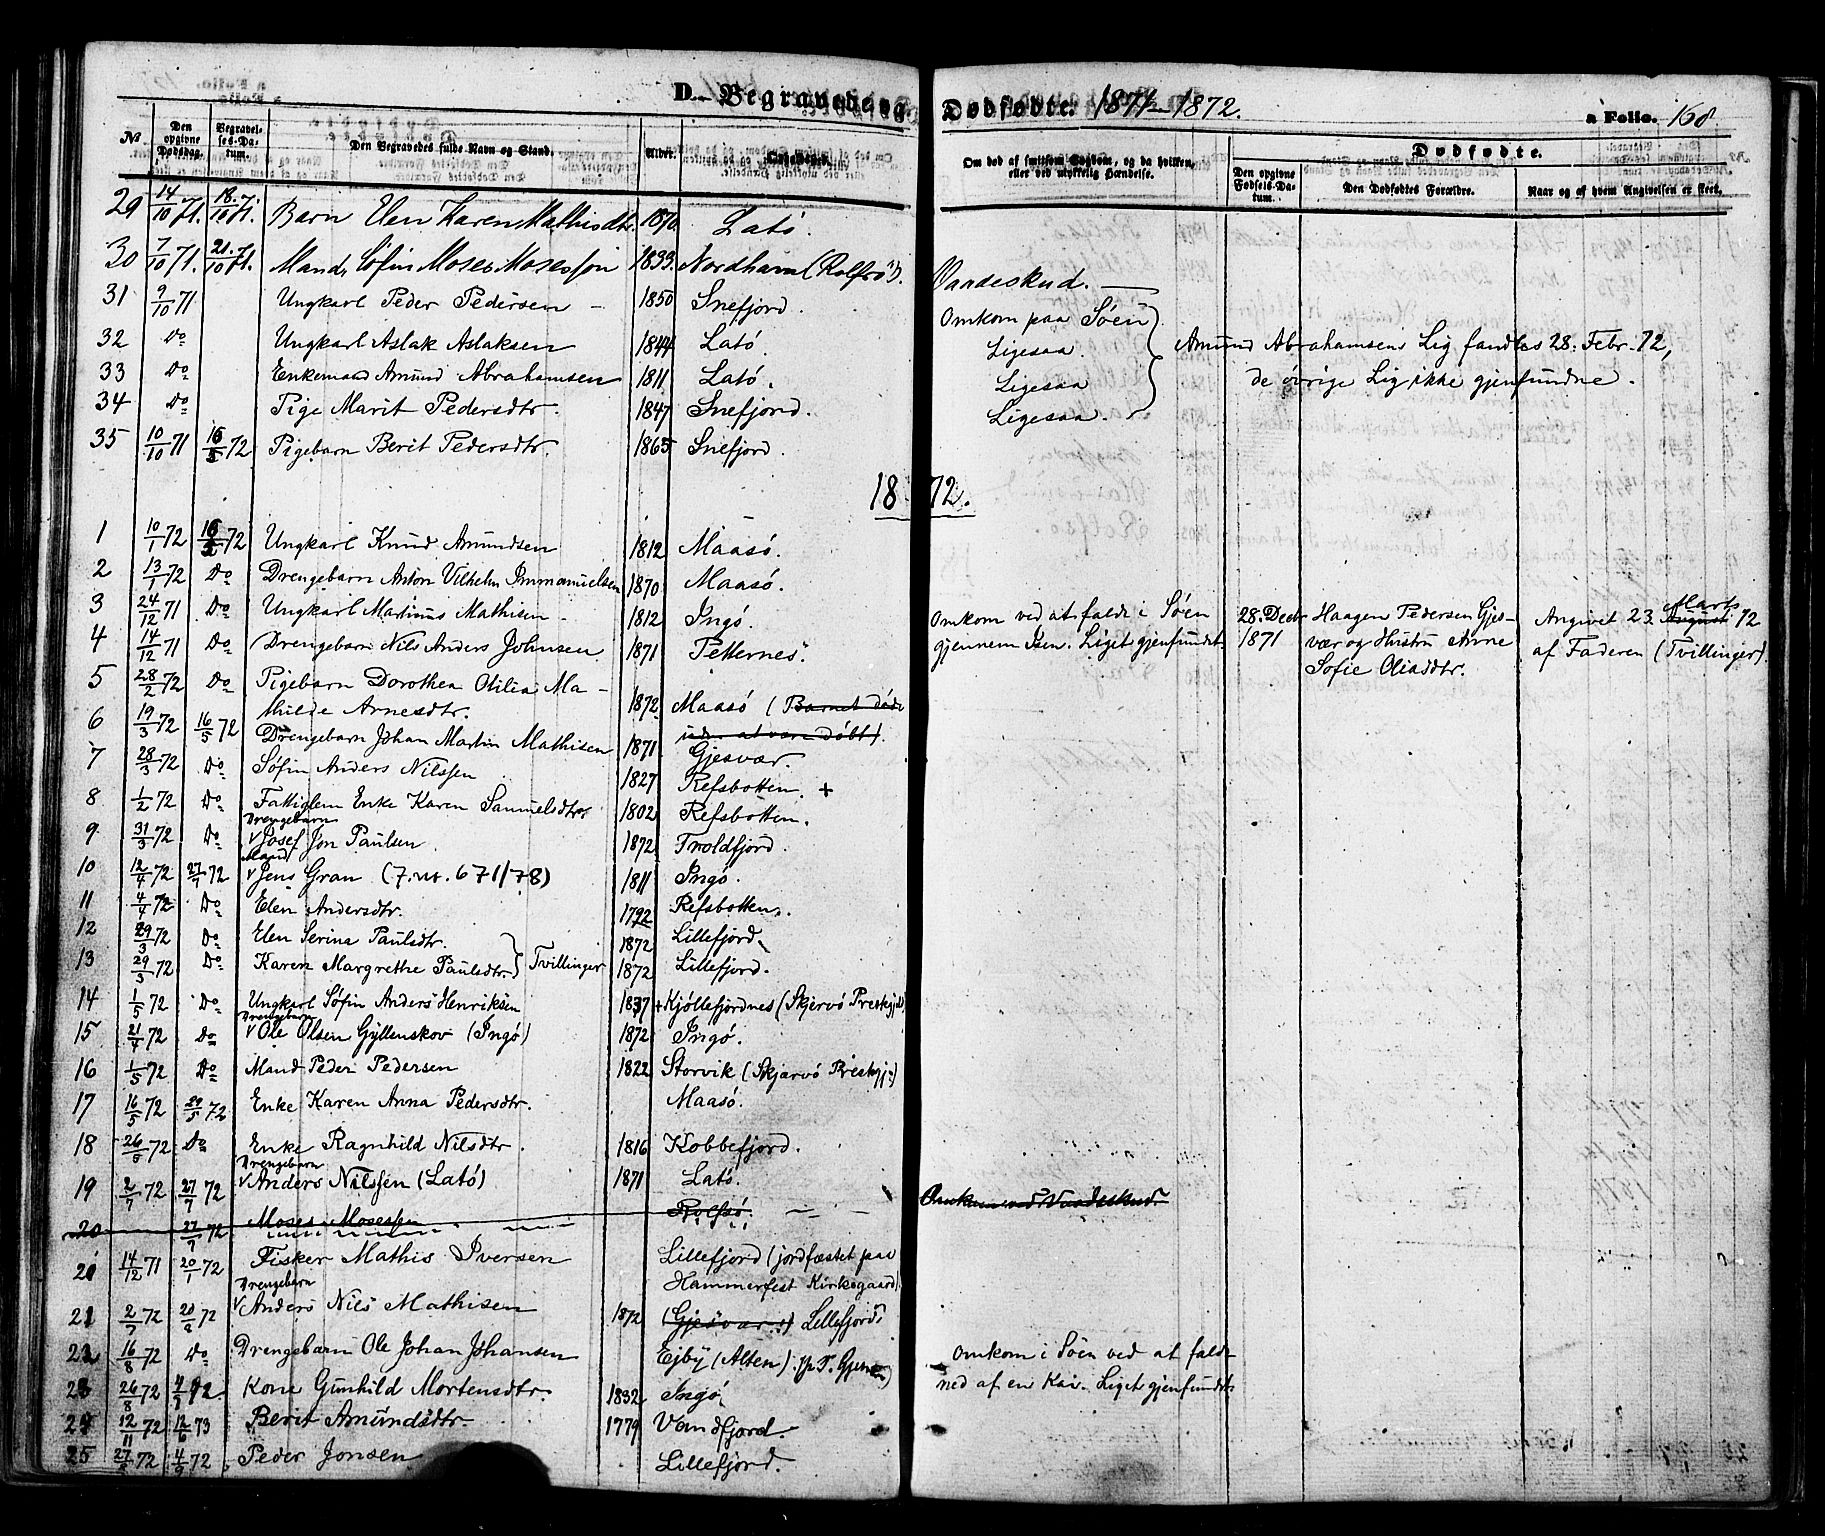 D. Begravede og Dødfødte. 1871-1872. a Folio. 168
No. Den opgivne Dødsdag. Begravelses-Datum. Den Begravedes fulde Navn og Stand. Alder.
Om død af smitsom Sygdom, og da hvilken, eller ved ulykkelig Hændelse.
Dødfødte.
Den opgivne Fødsels-Datum. Den Dødfødtes Forældre. Naar og af hvem Angivelsen er skeet.
29 14/10 71. 18/10 71. Barn Elen Karen Mathisdtr. 1870. Latö.
30 7/10 71. 21/10 71. Mand, Söfin Moses Mosessön 1833. Nordhavn (Rolfsö). Vaadeskud.
31 9/10 71 Ungkarl Peder Pedersen 1850 Snefjord. Omkom paa Søen
32 Do Ungkarl Aslak Aslaksen 1844 Latö. Ligesaa. Amund Abrahamsens Lig fandtes 28. Febr. 72,
33 Do Enkemand Amund Abrahamsen 1811 Latö. Ligesaa de övrige Lig ikke gjenfundne.
34 Do Pige Marit Pedersdtr. 1847 Snefjord. Ligesaa.
35 10/10 71 72 Pigebarn Berit Pedersdtr. 1865 Snefjord.
1872.
1 10/1 72 72 Ungkarl Knud Amundsen 1812 Maasö.
2 13/1 72 Do Drengebarn Anton Vilhelm Immanuelsen 1870 Maasö.
3 24/12 71 Do Ungkarl Martinus Mathisen 1812 Ingö. Omkom ved at falde i Søen 28. Decbr Haagen Pedersen Gjes- Angivet 23 August Marts 72
4 14/12 71 Do Drengebarn Nils Anders Johnsen 1871 Tetternes. gjennem Isen. Liget gjenfundet. 1871 vær og Hustru Anne af Faderen (Tvillinger)
Sofie Oliadtr.
5 28/2 72 Do Pigebarn Dorothea Otilia Ma-
thilde Arnesdtr. 1872. Maasö (Barnet döde
6 19/3 72 16/5 72 Drengebarn Johan Martin Mathisen 1871 uden at være döbt).
Gjesvær.
7 28/3 72 Do Söfin Anders Nilssen 1827 Refsbotten. +
8 1/2 72 Do Fattiglem Enke Karen Samuelsdtr 1802 Refsbotten.
Drengebarn
9 31/3 72 Do v Josef Jon Paulsen 1872 Troldfjord.
Mand
10 12/4 72 27/7 72 v Jens Gran (7. nr. 671/78) 1811 Ingö.
11 4/4 72 Do Elen Andersdtr. 1792 Refsbotten.
12 29/3 72 Do Elen Serina Paulsdtr. 1872 Lillefjord.
13 29/3 72 Do Karen Margrethe Paulsdtr. } Tvillinger 1872 Lillefjord.
14 1/5 72 Do Ungkarl Söfin Anders Henriksen 1837 + Kjöllefjordnes (Skjervö Prestgjd)
Drengebarn
15 21/4 72 Do v Ole Olsen Gyllenskov (Ingö) 1872 Ingö.
16 1/5 72 Do Mand Peder Pedersen 1822 Storvik (Skjærvö Prestgj:)
17 16/5 72 20/5 72 Enke Karen Anna Pedersdtr. Maasö.
18 26/5 72 Do Enke Ragnhild Nilsdtr 1816 Kobbefjord.
Drengebarn
19 2/7 72 27/7 72 v Anders Nilssen (Latö) 1871 Latö.
20 27/7 72 Moses Mosessen Rolfsö. Omkom ved Vaadeskud.
20 14/12 71 20/1 72 Fisker Mathis Iversen Lillefjord (jordfæstet paa
Hammerfest Kirkegaard).
Drengebarn
21 2/7 72 72 v Anders Nils Mathisen 1872 (Gjesvær) Lillefjord
22 16/8 72 Do Drengebarn Ole Johan Johansen Ejby (Alten) Omkom i Søen ved at falde
23 26/8 72 72 Kone Gunhild Mortensdtr. 1832 Ingö ned af en Kai. Liget gjenfundet
24 12/11 72 12/6 73 Berit Amundsdtr. 1779 Vandfjord.
25 72 4/9 72 Peder Jonsen Lillefjord.